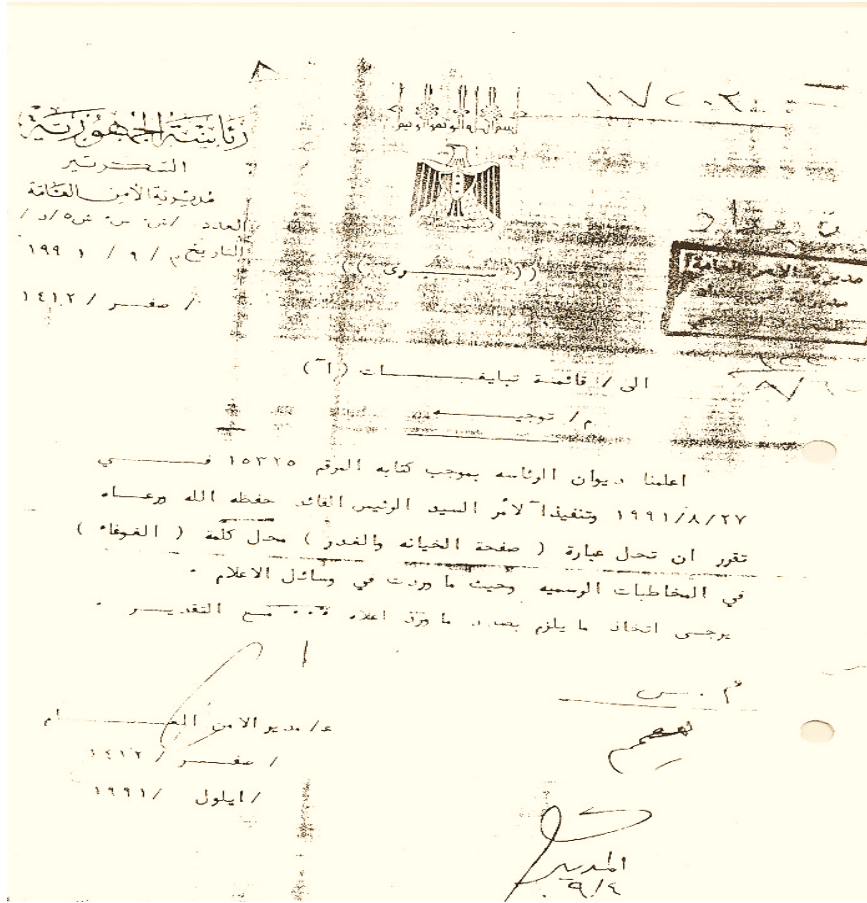 بسم الله الرحمن الرحيم
رئاسة الجمهورية
السكرتير
مديرية الأمن العامة
العدد /ش٠ س٠ ش٥/د/
التاريخ م/ ٩ / ١٩٩١
/ صفر / ١٤١٢
مديرية الأمن العامة
الى / قائمة تبليغــات (أ)
م/ توجيــه
اعلمنا ديوان الرئاسه بموجب كتابه المرقم ١٥٣٢٥ فــي
١٩٩١/٨/٢٧ وتنفيذا لأمر السيد الرئيس القائد حفظه الله ورعــاه
تقرر ان تحل عبارة ( صفحة الخيانه والغدر ) محل كلمة ( الغوغاء )
في المخاطبات الرسميه وحيث ما وردت في وسائل الاعلام ٠
يرجــى اتخاذ ما يلزم بصدد ما ورد اعلاه ٠٠٠ مــع التقديــر ٠
ع/ مدير الامن العــــام
/ صفــر / ١٤١٢
/ ايلول / ١٩٩١
أ . س
المدير
٩/٤